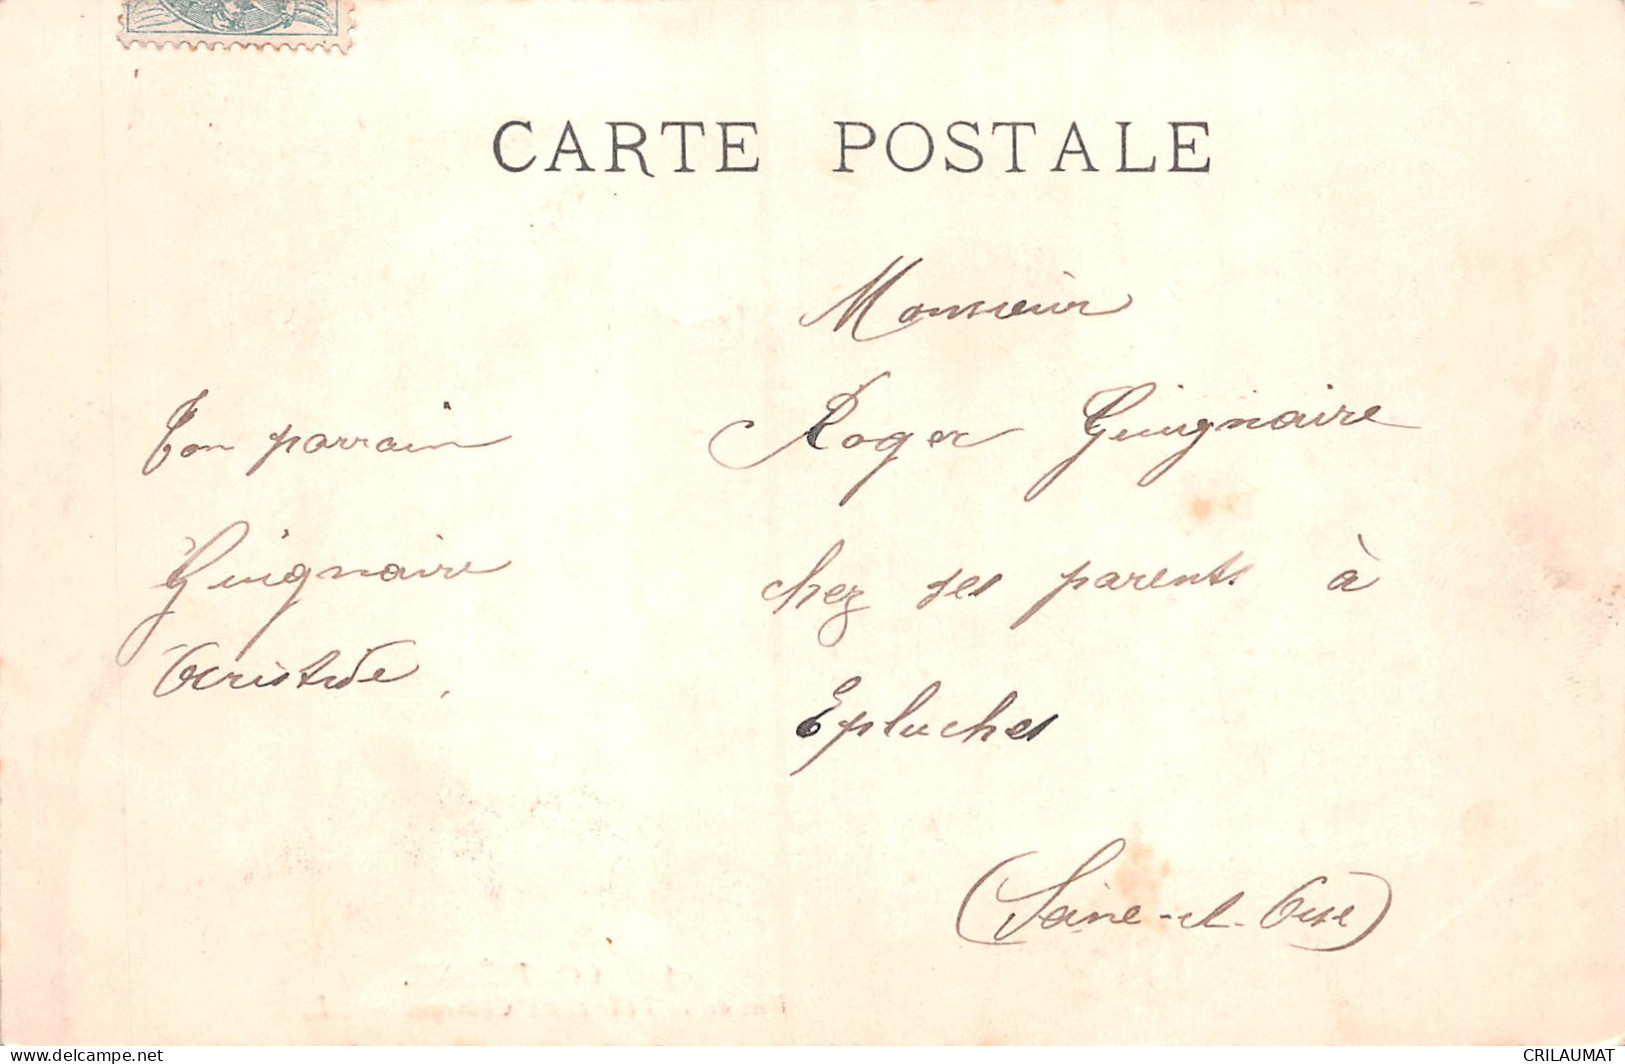 CARTE POSTALE
Monsieur
Roger Guignaire
chez ses parents à
Epluches
(Seine-et-Oise)
Ton parrain
Guignaire
Aristide.
delcampe.net
CRILAUMAT